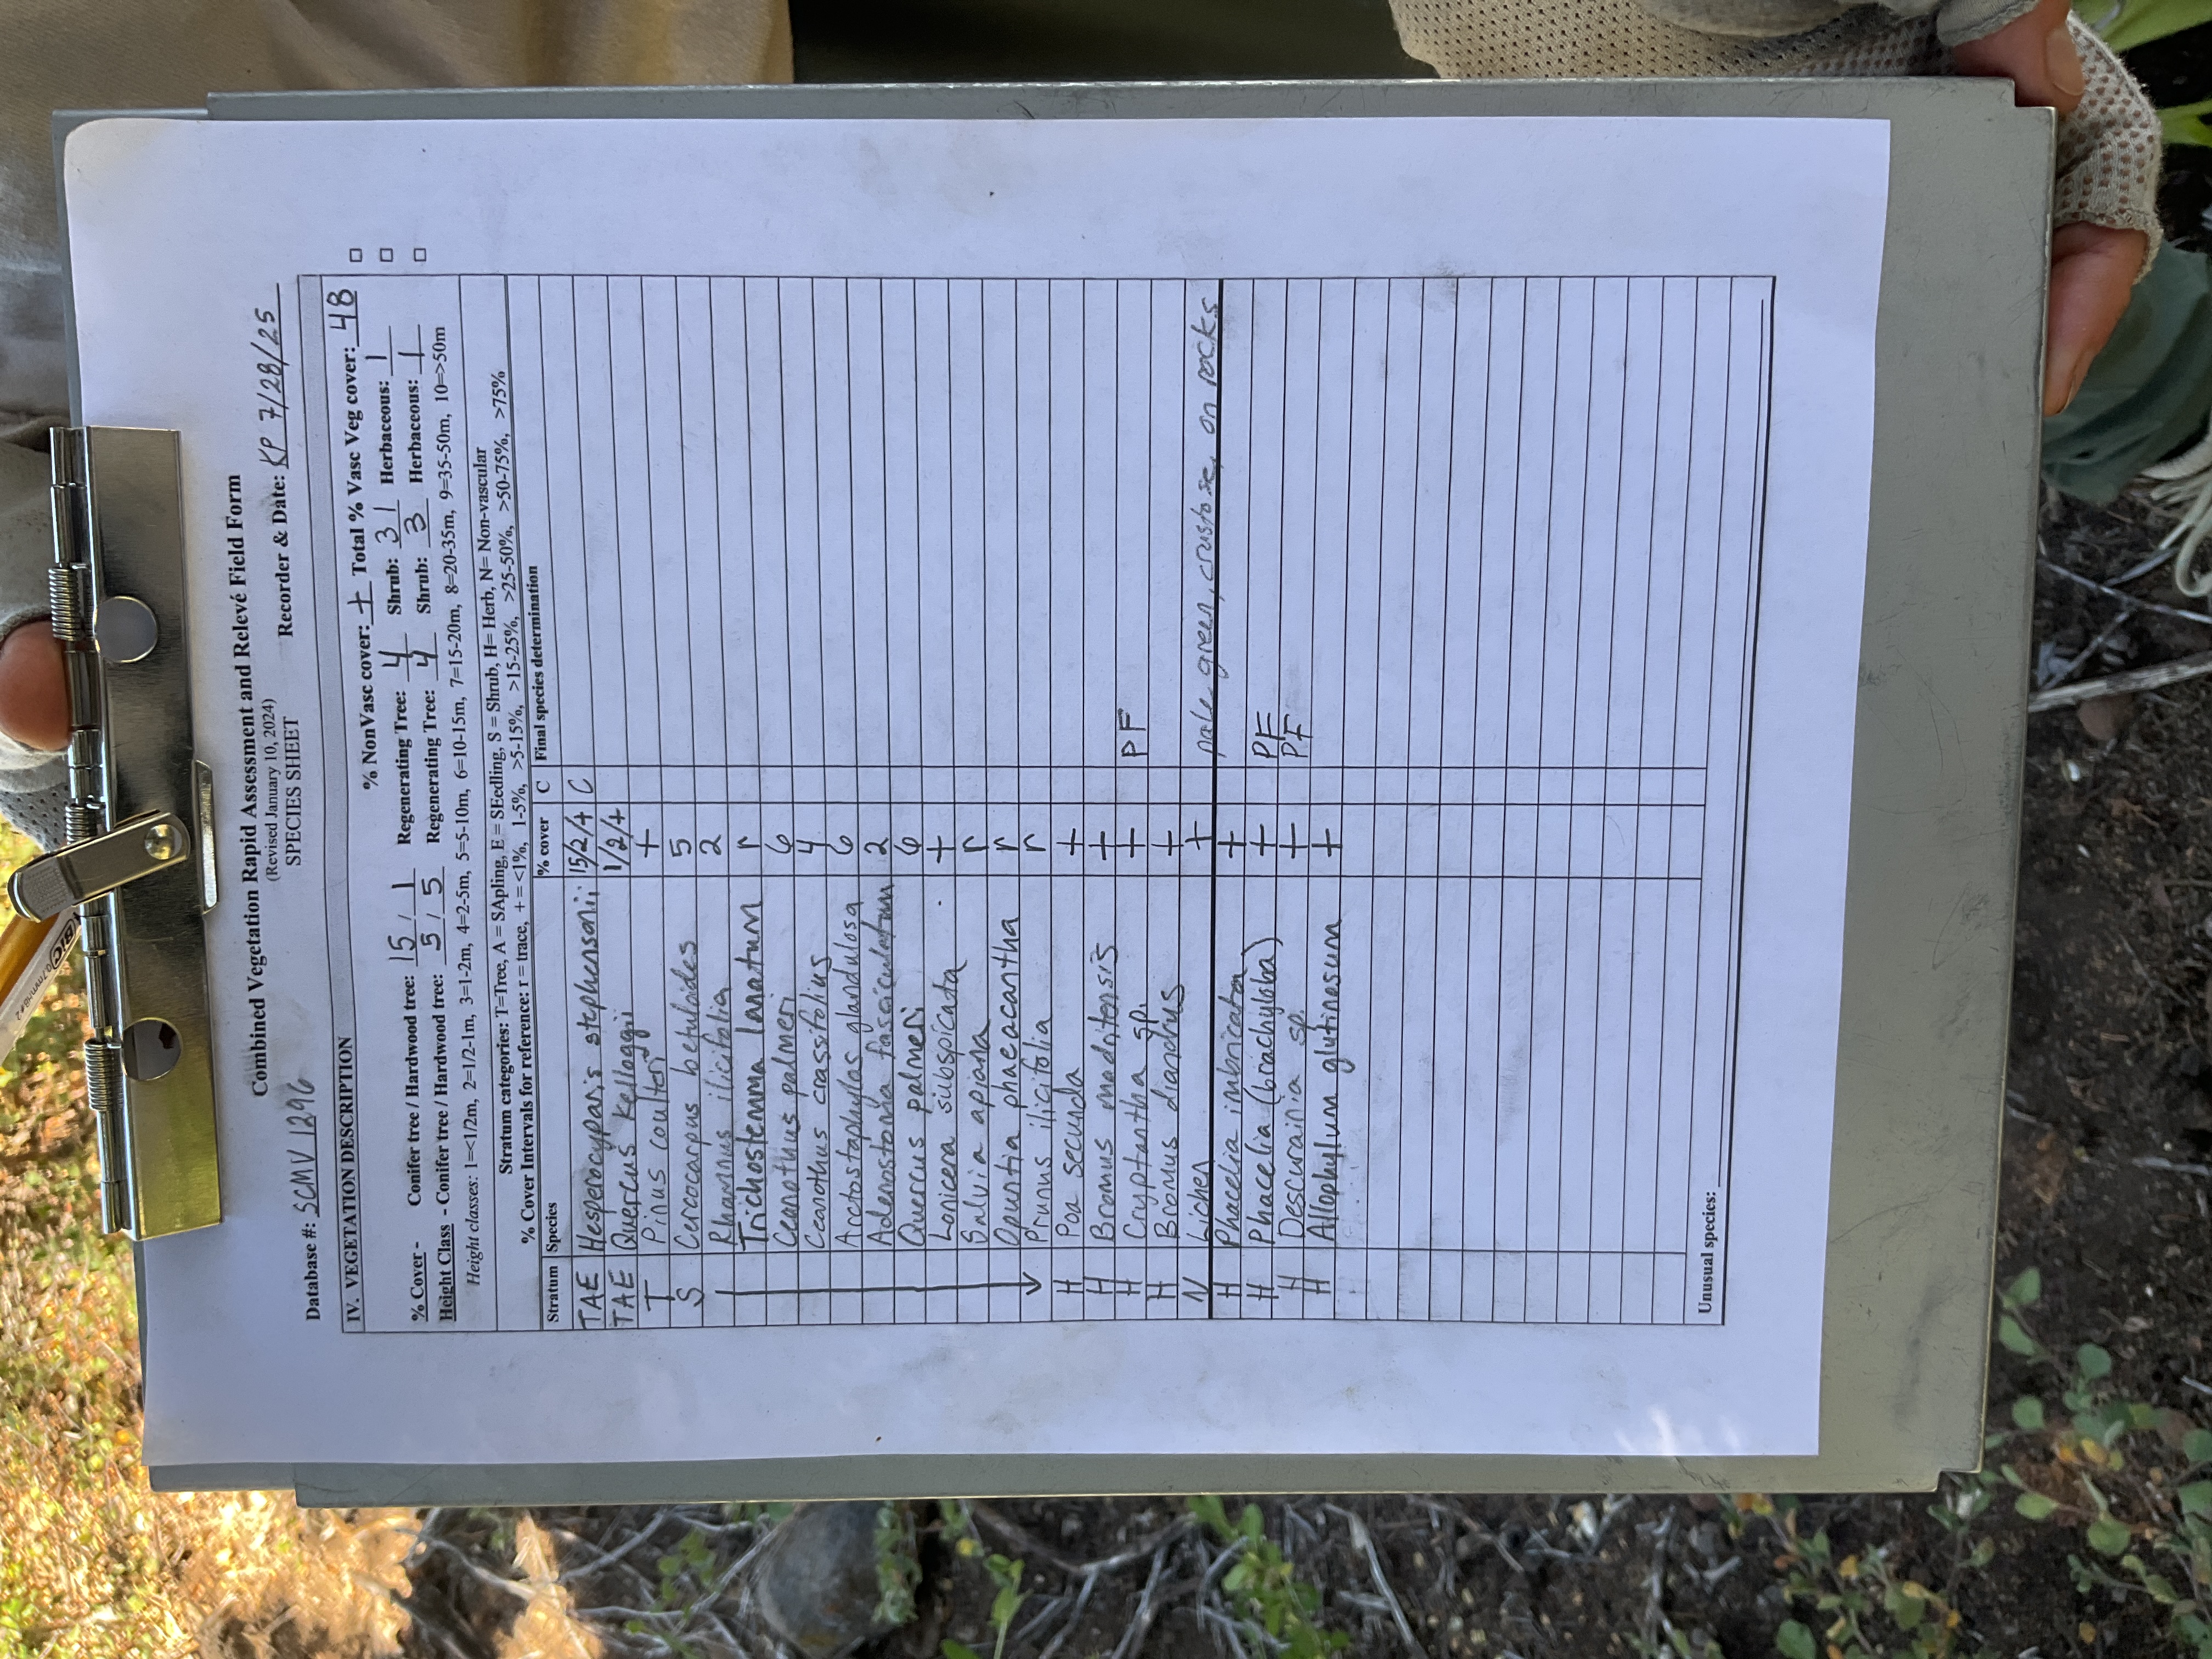 Combined Vegetation Rapid Assessment and Relevé Field Form
(Revised January 10, 2024)
SPECIES SHEET
Database #: SCMV1296 Recorder & Date: KP 7/28/25
IV. VEGETATION DESCRIPTION
% NonVasc cover: + Total % Vasc Veg cover: 48
% Cover - Conifer tree / Hardwood tree: 15 / 1 Regenerating Tree: 4 Shrub: 31 Herbaceous: 1
Height Class - Conifer tree / Hardwood tree: 5 / 5 Regenerating Tree: 4 Shrub: 3 Herbaceous: 1
Height classes: 1=<1/2m, 2=1/2-1m, 3=1-2m, 4=2-5m, 5=5-10m, 6=10-15m, 7=15-20m, 8=20-35m, 9=35-50m, 10=>50m
Stratum categories: T=Tree, A = SApling, E = SEedling, S = Shrub, H= Herb, N= Non-vascular
% Cover Intervals for reference: r = trace, + = <1%, 1-5%, >5-15%, >15-25%, >25-50%, >50-75%, >75%
Stratum Species % cover C Final species determination
TAE Hesperocyparis stephensonii 15/2/+ C
TAE Quercus kelloggii 1/2/+
T Pinus coulteri +
S Cercocarpus betuloides 5
Rhamnus ilicifolia 2
Trichostemma lanatum r
Ceanothus palmeri 6
Ceanothus crassifolius 4
Arctostaphylos glandulosa 6
Adenostoma fasciculatum 2
Quercus palmeri 6
Lonicera subspicata +
Salvia apiana r
Opuntia phaeacantha r
Prunus ilicifolia r
H Poa secunda +
H Bromus madritensis +
H Cryptantha sp. + PF
H Bromus diandrus +
N Lichen + pale green, crustose, on rocks
H Phacelia imbricata +
H Phacelia (brachyloba) + PF
H Descurainia sp. + PF
H Allophylum glutinosum +
Unusual species:
BIC